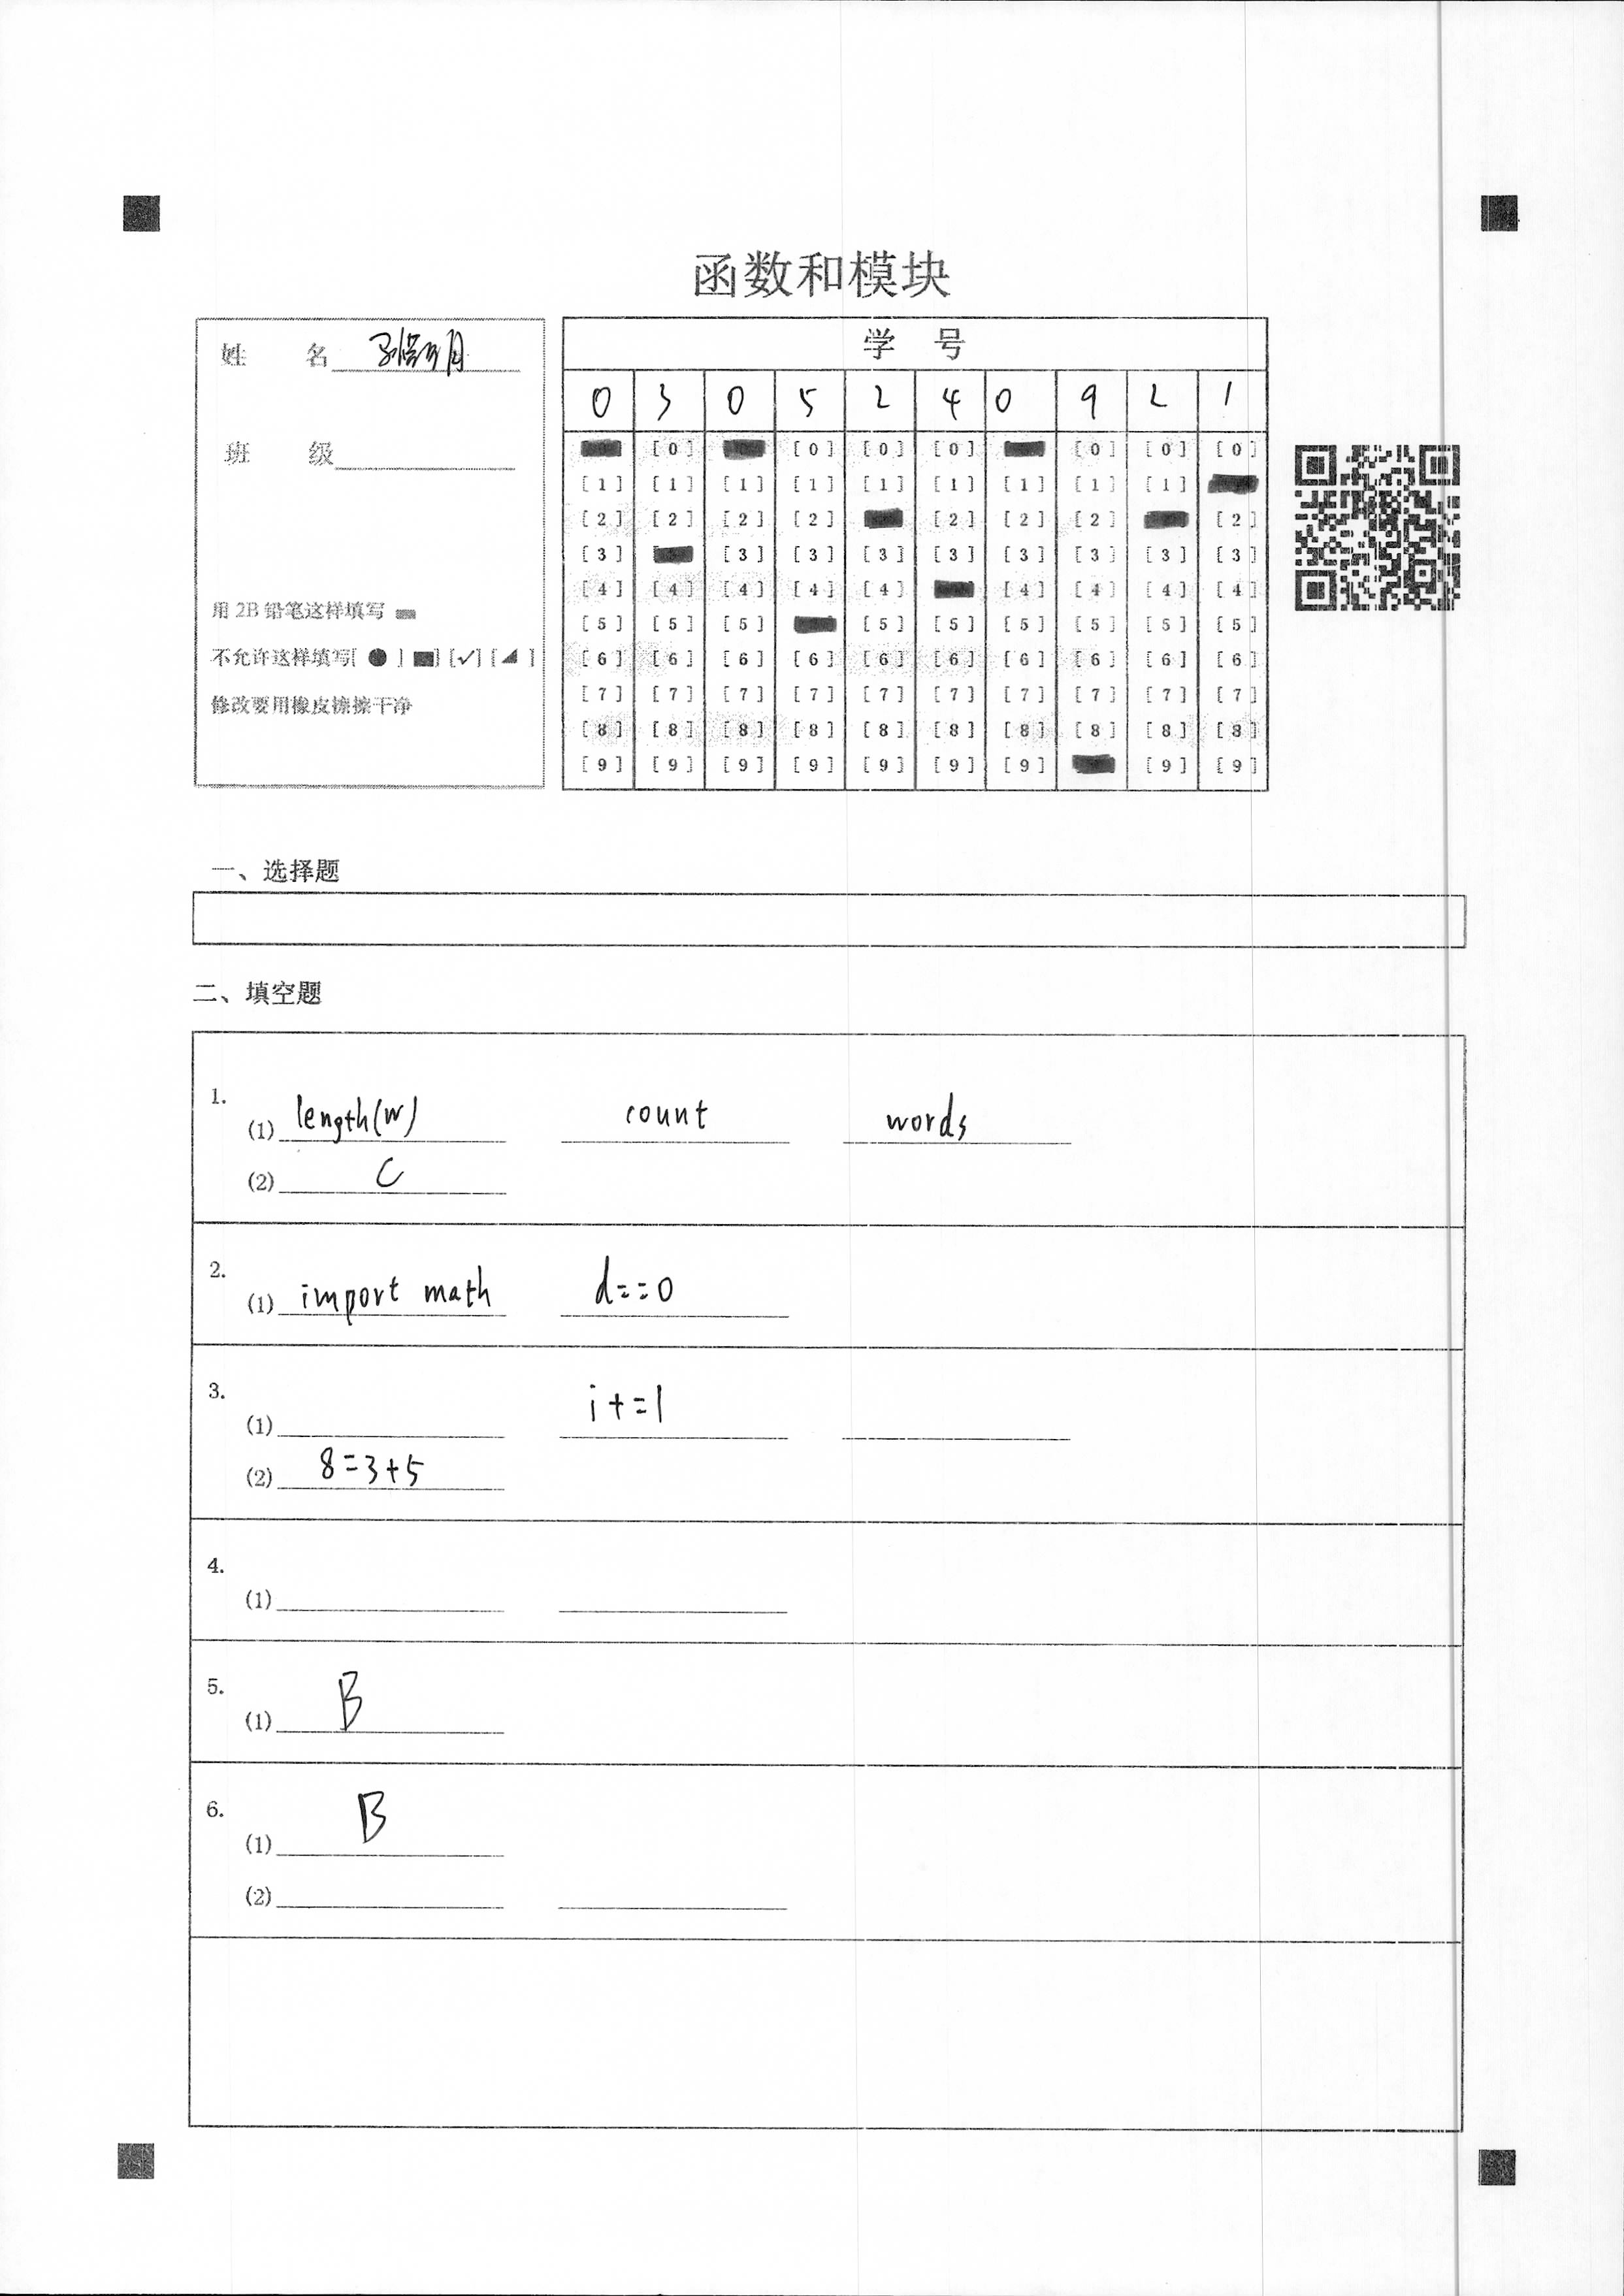 函数和模块
姓 名
班 级
用 2B 铅笔这样填写
不允许这样填写[ ● ] [■] [✓] [◢ ]
修改要用橡皮擦擦干净
学 号
0 3 0 5 2 4 0 9 2 1
[0] [0] [0] [0] [0] [0] [0]
[1] [1] [1] [1] [1] [1] [1] [1] [1]
[2] [2] [2] [2] [2] [2] [2] [2]
[3] [3] [3] [3] [3] [3] [3] [3] [3]
[4] [4] [4] [4] [4] [4] [4] [4] [4]
[5] [5] [5] [5] [5] [5] [5] [5] [5]
[6] [6] [6] [6] [6] [6] [6] [6] [6] [6]
[7] [7] [7] [7] [7] [7] [7] [7] [7] [7]
[8] [8] [8] [8] [8] [8] [8] [8] [8] [8]
[9] [9] [9] [9] [9] [9] [9] [9] [9]
一、选择题
二、填空题
1.
(1) length(w) count words
(2) C
2.
(1) import math d==0
3.
(1) i+=1
(2) 8=3+5
4.
(1)
5.
(1) B
6.
(1) B
(2)